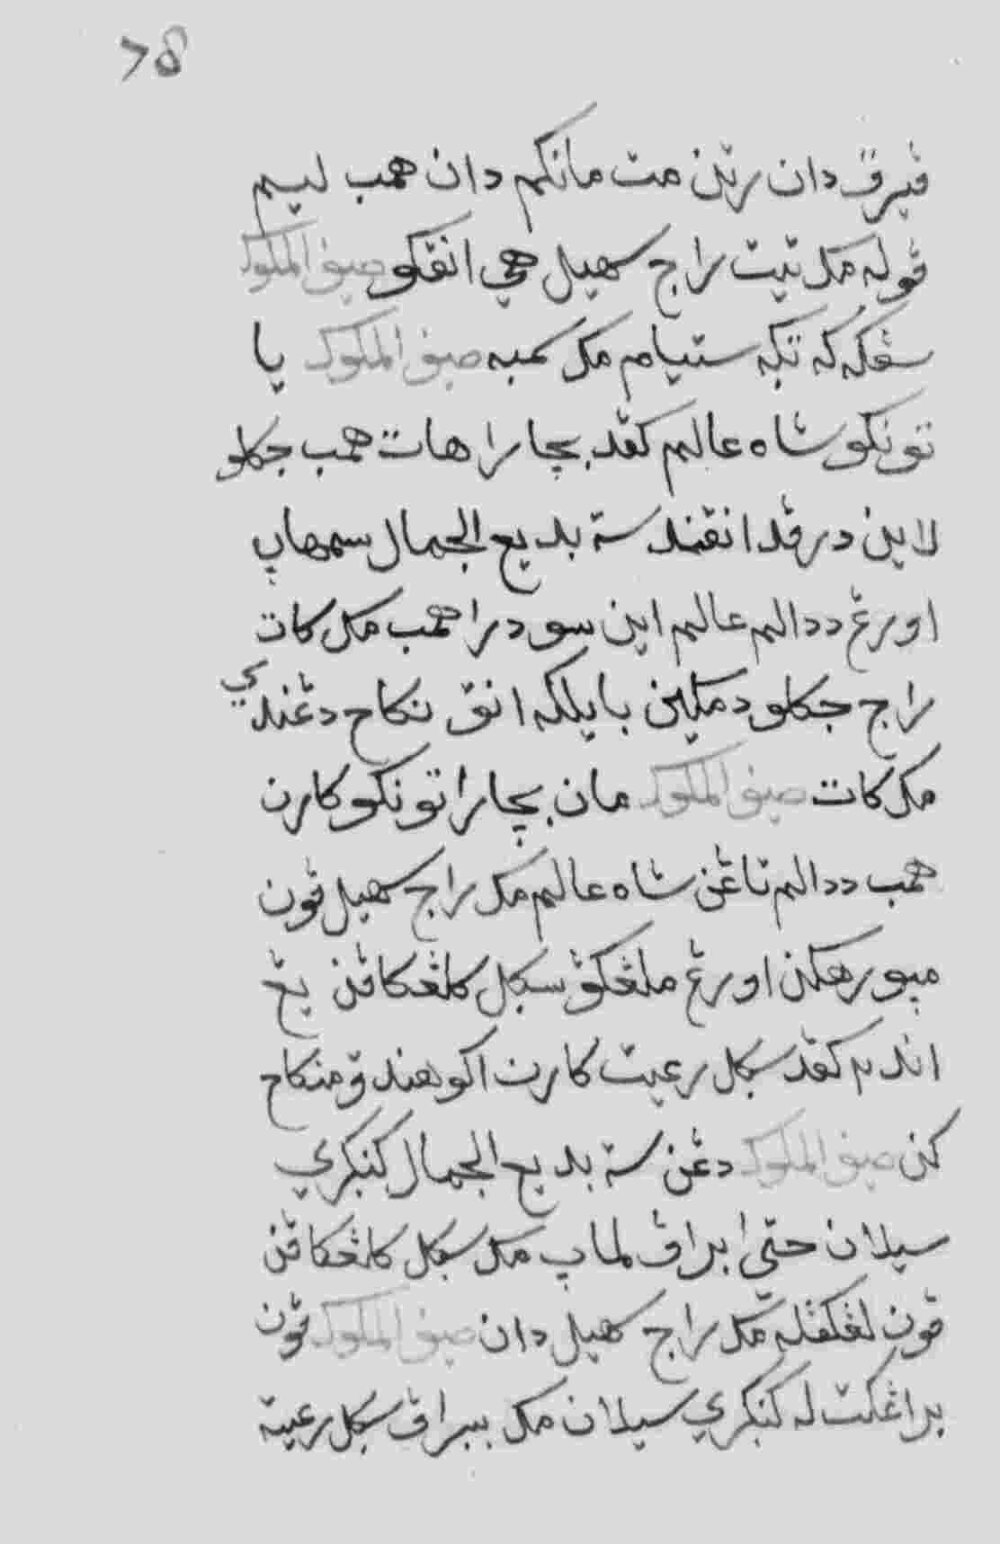 ٧٥
ڤيرق دان رتن مت مانكم دان همب ليم
ڤوله مك تيته راج سهيل هي انقكو صيف الملوك
سڠكه كه تكه ستيام مك سمبه صيف الملوك يا
تونكو شاه عالم كڤد بچارا هات همب جكلو
لاين درڤد انقند ست بديع الجمال سمهاڽ
اورڠ ددالم عالم اين سودرا همب مك كات
راج جكلو دمكين بايكله انق نكاح دڠندي
مك كات صيف الملوك مان بچارا تونكو كارن
همب ددالم تاڠن شاه عالم مك راج سهيل ڤون
ميورهكن اورڠ ملڠكڤ سكل كلڠكاڤن يڠ
انده كڤد سكل رعيت كارن اكو هندق منكاح
كن صيف الملوك دڠن ست بديع الجمال كنكري
سيلان حتى ابراڤ لماڽ مك سكل كلڠكاڤن
ڤون لڠكڤله مك راج سهيل دان صيف الملوك ڤون
براڠكتله كنكري سيلان مك ببراڤ سكل رعيت